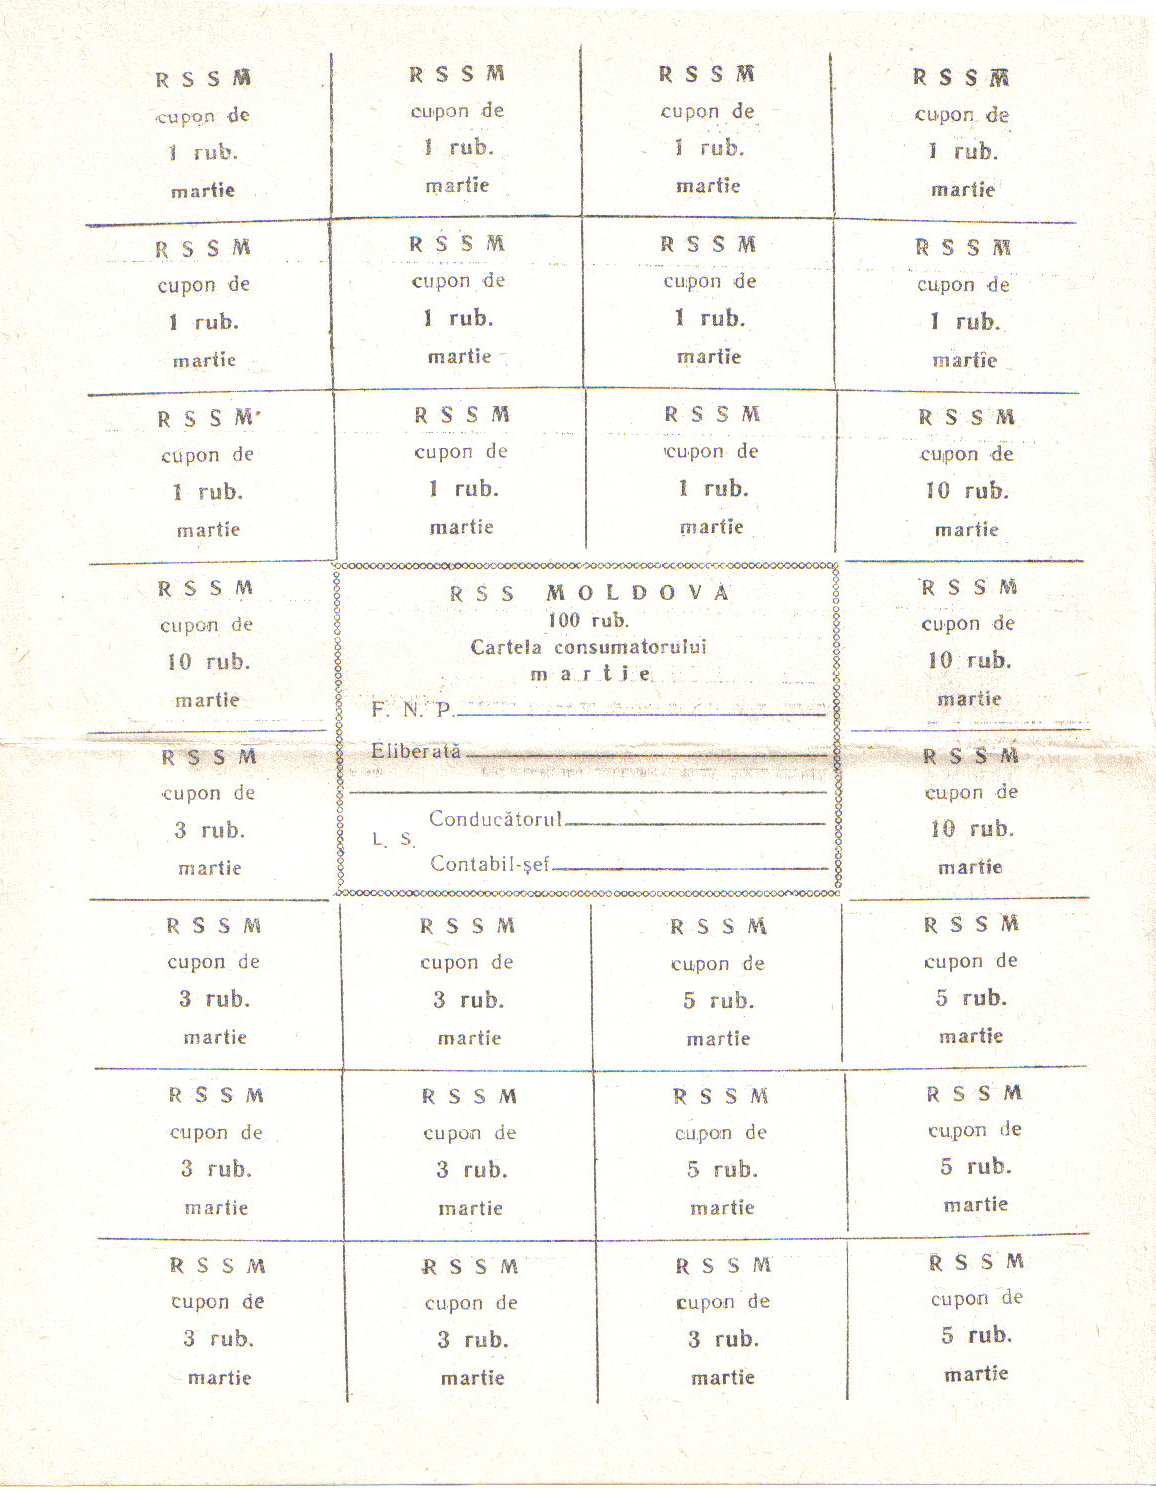 R S S M
cupon de
1 rub.
martie
R S S M
cupon de
1 rub.
martie
R S S M
cupon de
1 rub.
martie
R S S M
cupon de
1 rub.
martie
R S S M
cupon de
1 rub.
martie
R S S M
cupon de
1 rub.
martie
R S S M
cupon de
1 rub.
martie
R S S M
cupon de
1 rub.
martie
R S S M
cupon de
1 rub.
martie
R S S M
cupon de
1 rub.
martie
R S S M
cupon de
1 rub.
martie
R S S M
cupon de
10 rub.
martie
R S S M
cupon de
10 rub.
martie
RSS MOLDOVA
100 rub.
Cartela consumatorului
martie
F. N. P.
Eliberată
Conducătorul
L. S.
Contabil-şef
R S S M
cupon de
10 rub.
martie
R S S M
cupon de
3 rub.
martie
R S S M
cupon de
10 rub.
martie
R S S M
cupon de
3 rub.
martie
R S S M
cupon de
3 rub.
martie
R S S M
cupon de
5 rub.
martie
R S S M
cupon de
5 rub.
martie
R S S M
cupon de
3 rub.
martie
R S S M
cupon de
3 rub.
martie
R S S M
cupon de
5 rub.
martie
R S S M
cupon de
5 rub.
martie
R S S M
cupon de
3 rub.
martie
R S S M
cupon de
3 rub.
martie
R S S M
cupon de
3 rub.
martie
R S S M
cupon de
5 rub.
martie